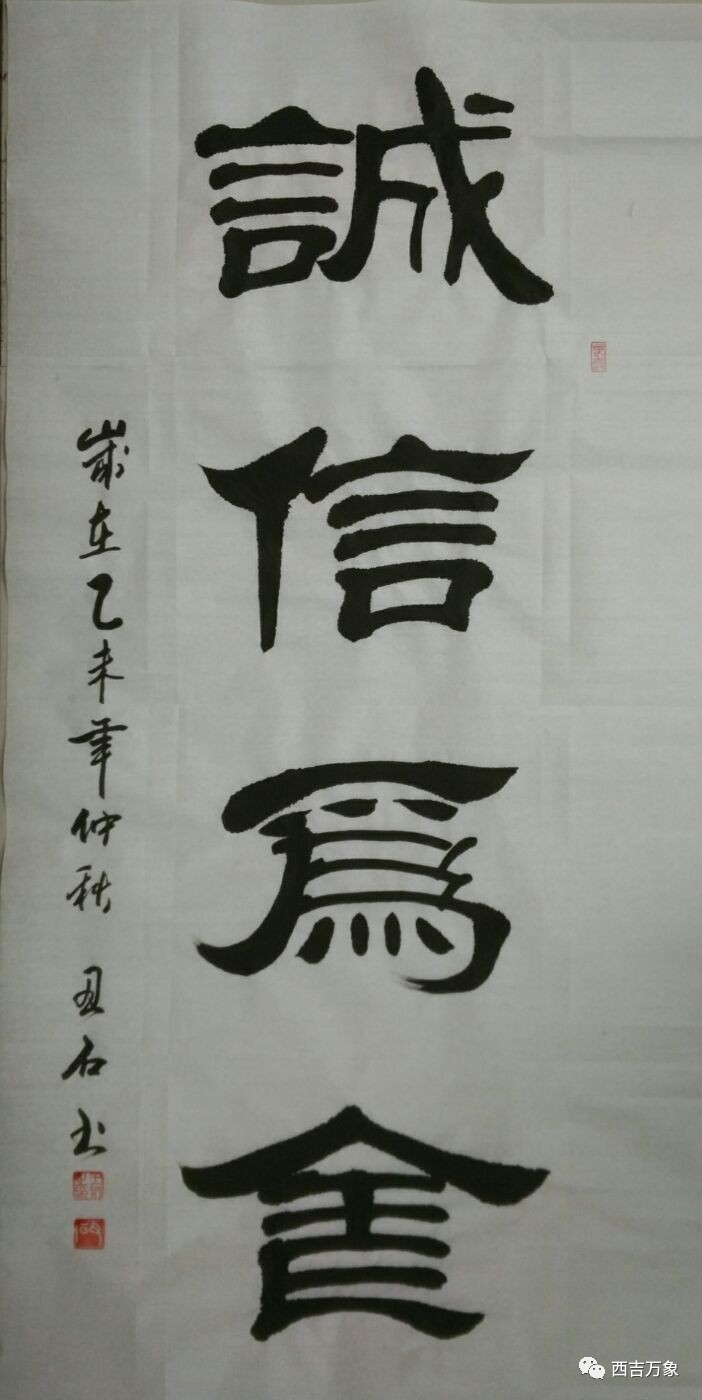 誠信爲食
歲在乙未年仲秋 丑石书
西吉万象